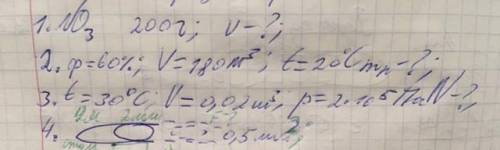 1. NO₃ 200г; ν-?;
2. φ=60%; V=180м³; t=20°C m_п-?;
3. t=30°C; V=0,02м³, p=2·10⁵Па N-?
4. 0,5 мм²;